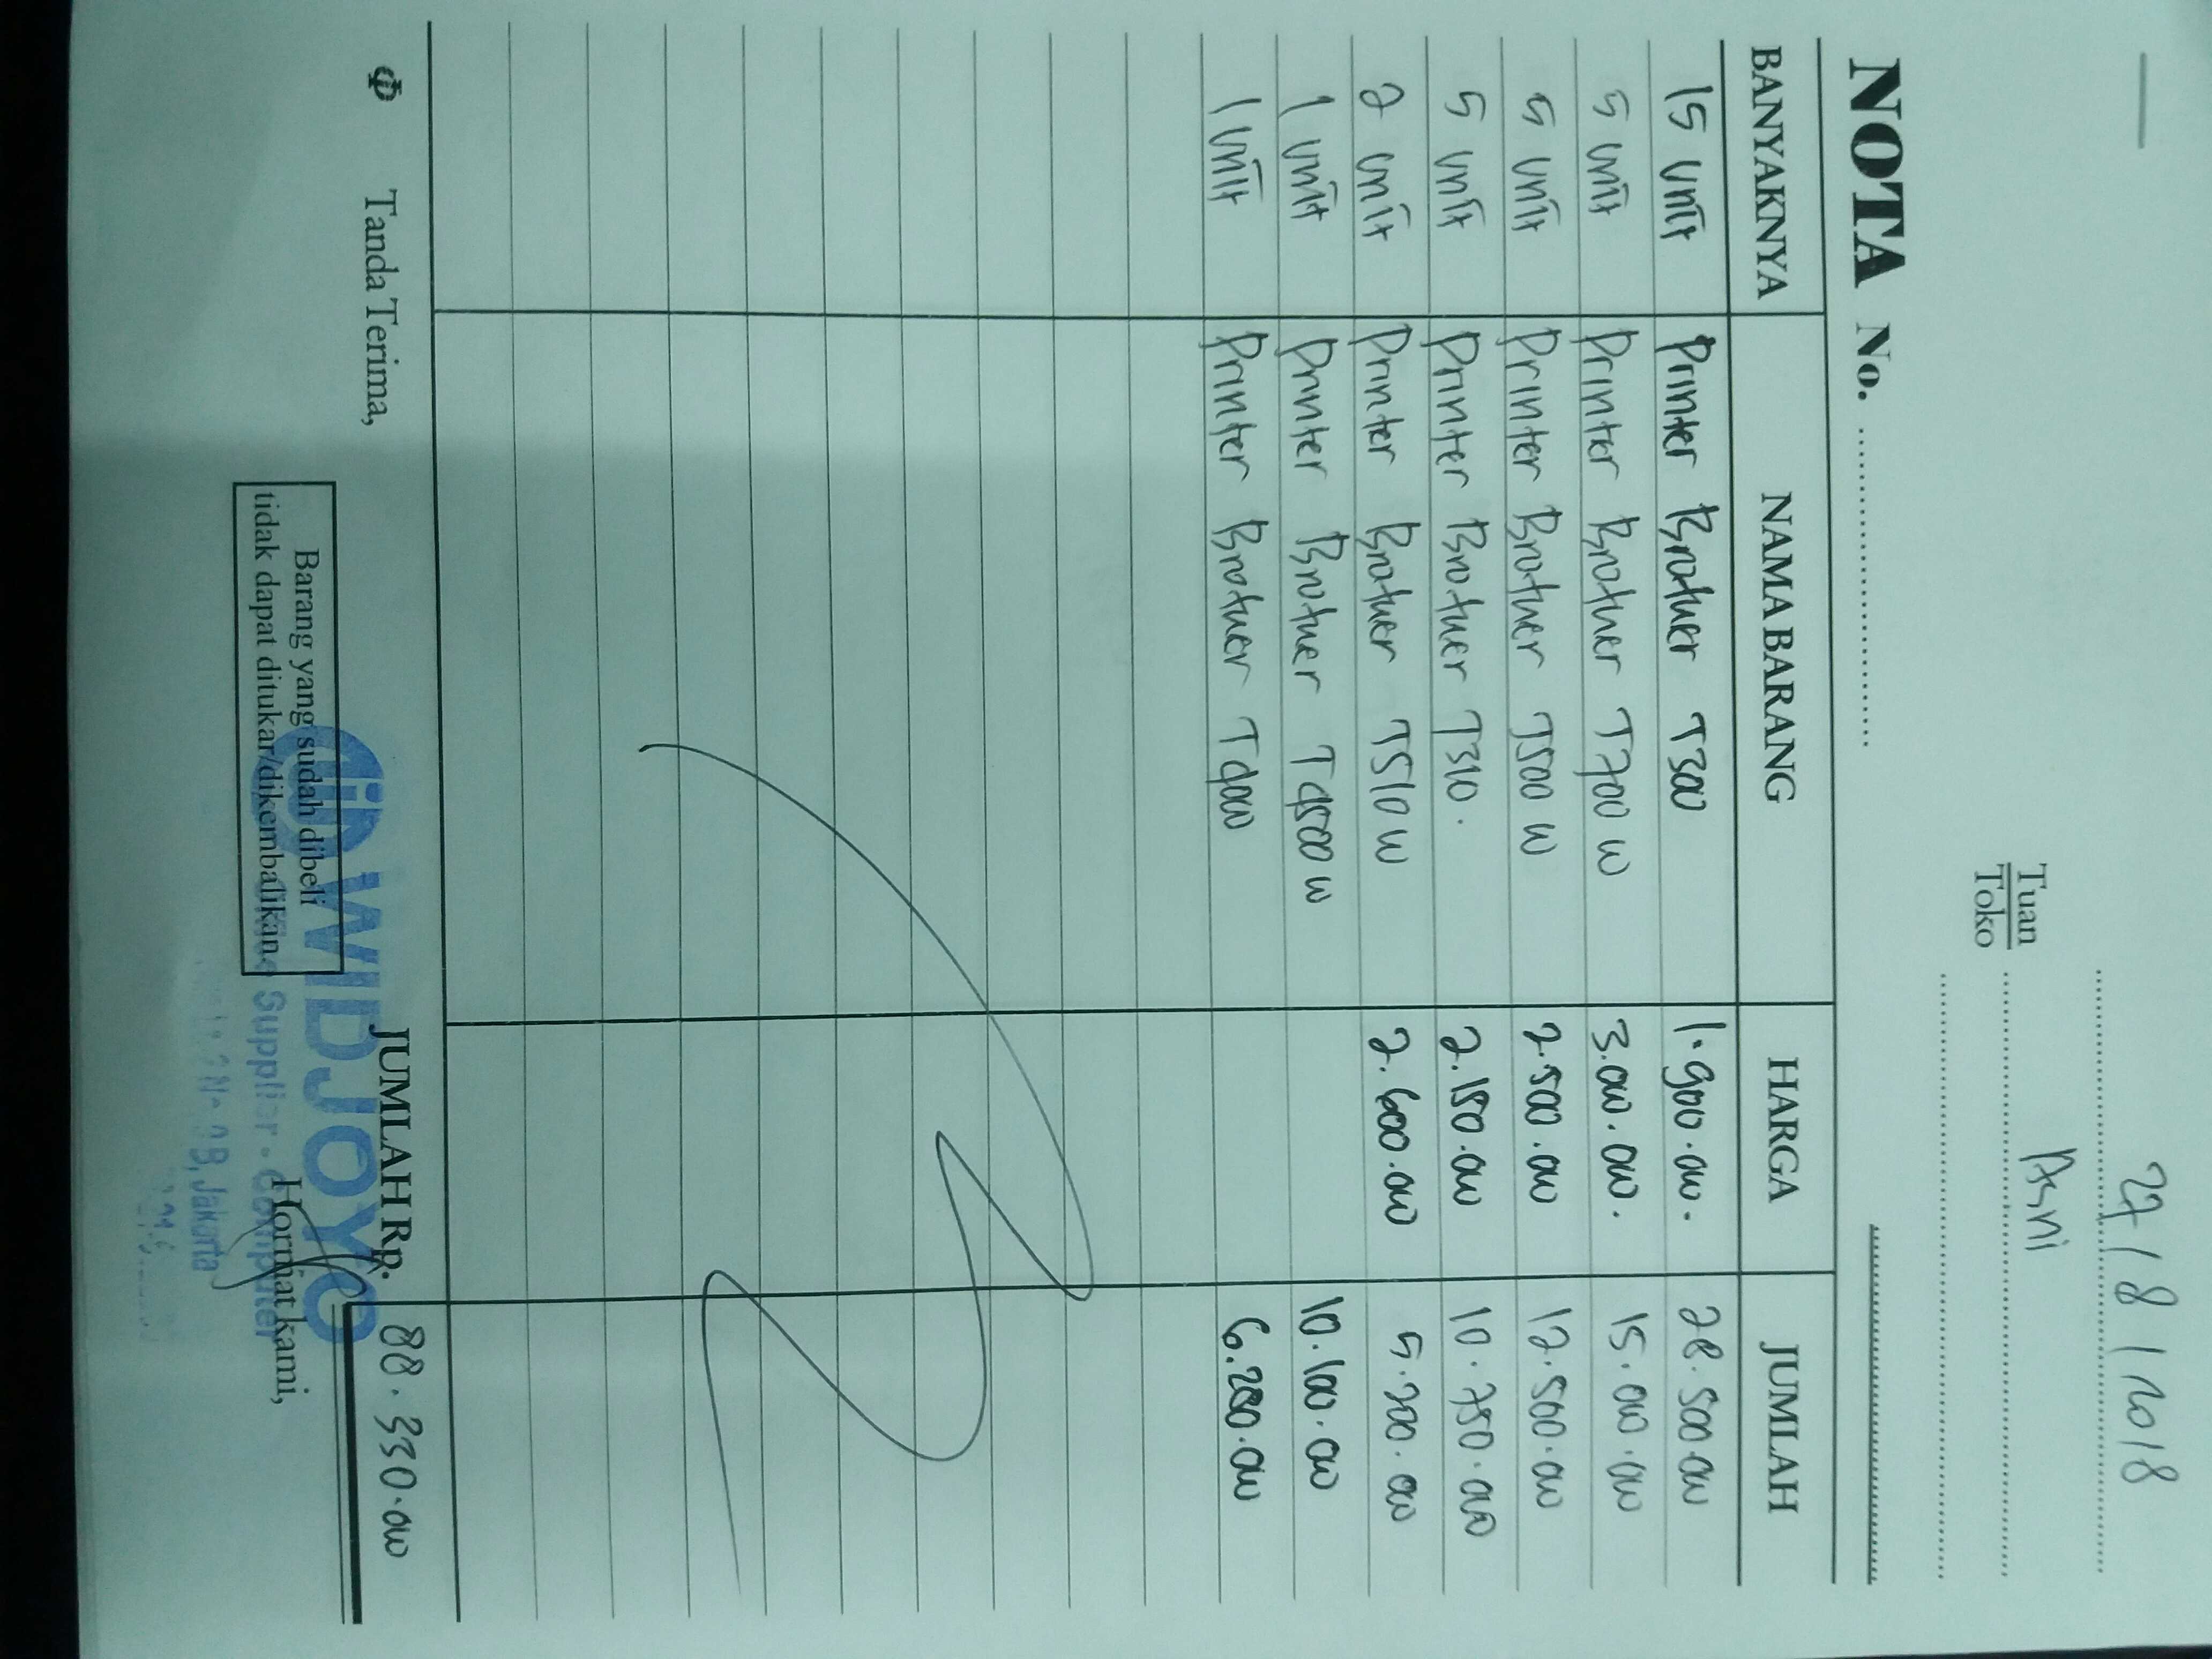 27/8/2018
Tuan Asni
Toko
NOTA No.
BANYAKNYA NAMA BARANG HARGA JUMLAH
15 unit Printer Brother T300 1.900.000. 28.500.000
5 unit Printer Brother T700 W 3.000.000. 15.000.000
5 unit Printer Brother T500 W 2.500.000 12.500.000
5 unit Printer Brother T310. 2.150.000 10.750.000
2 unit Printer Brother T510 W 2.600.000 5.200.000
1 unit Printer Brother T4500 W 10.100.000
1 unit Printer Brother T4000 6.280.000
JUMLAH Rp. 88.330.000
Tanda Terima,
Barang yang sudah dibeli
tidak dapat ditukar/dikembalikan
Hormat kami,
WIDJOYO
Supplier - Computer
Jakarta